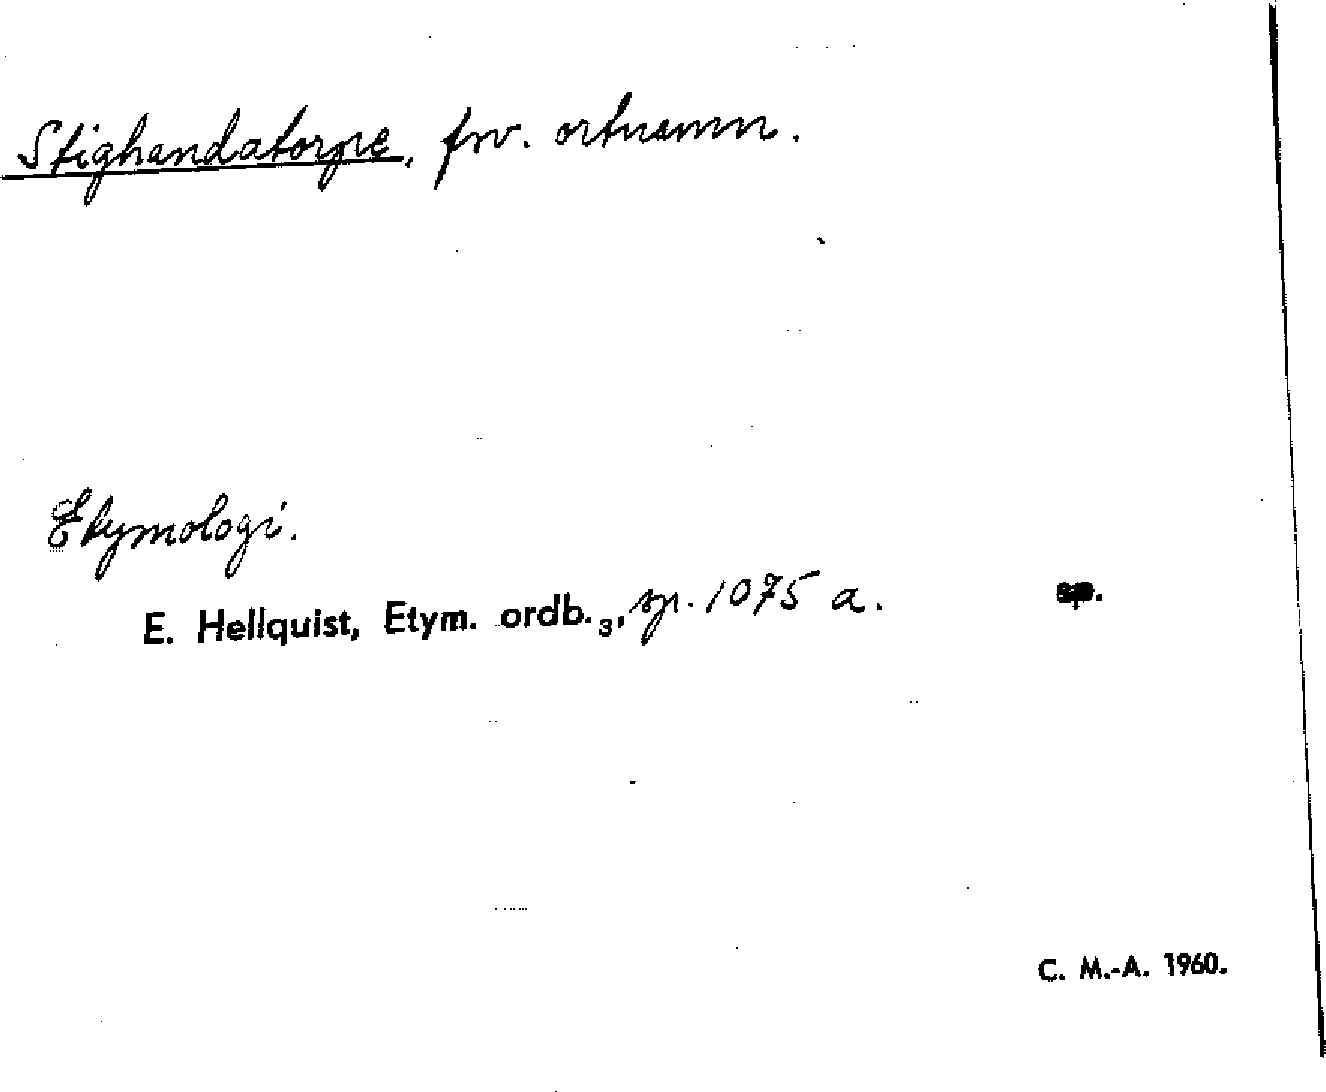 Stighandatorpe, fsv. ortnamn.
Etymologi.
E. Hellquist, Etym. ordb.₃, sp. 1075 a. sp.
C. M.-A. 1960.